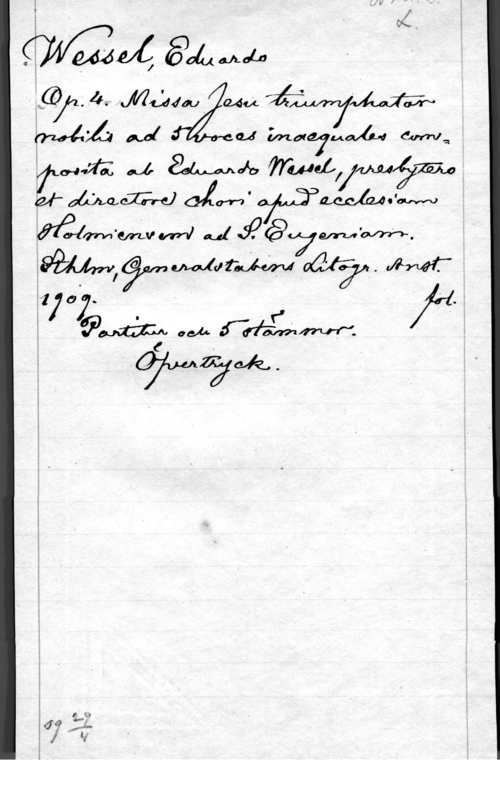 L.
Wessel, Eduardo
Op. 4. Missa Jesu triumphator
nobilis ad 5 voces inaequales com-
posita ab Eduardo Wessel, presbytero
et directore chori apud ecclesiam
Holmiensem ad S. Eugeniam.
Sthlm, Generalstabens Litogr. Anst.
1909. fol.
Partitur och 5 stämmor.
Övertryck.
09 29/4